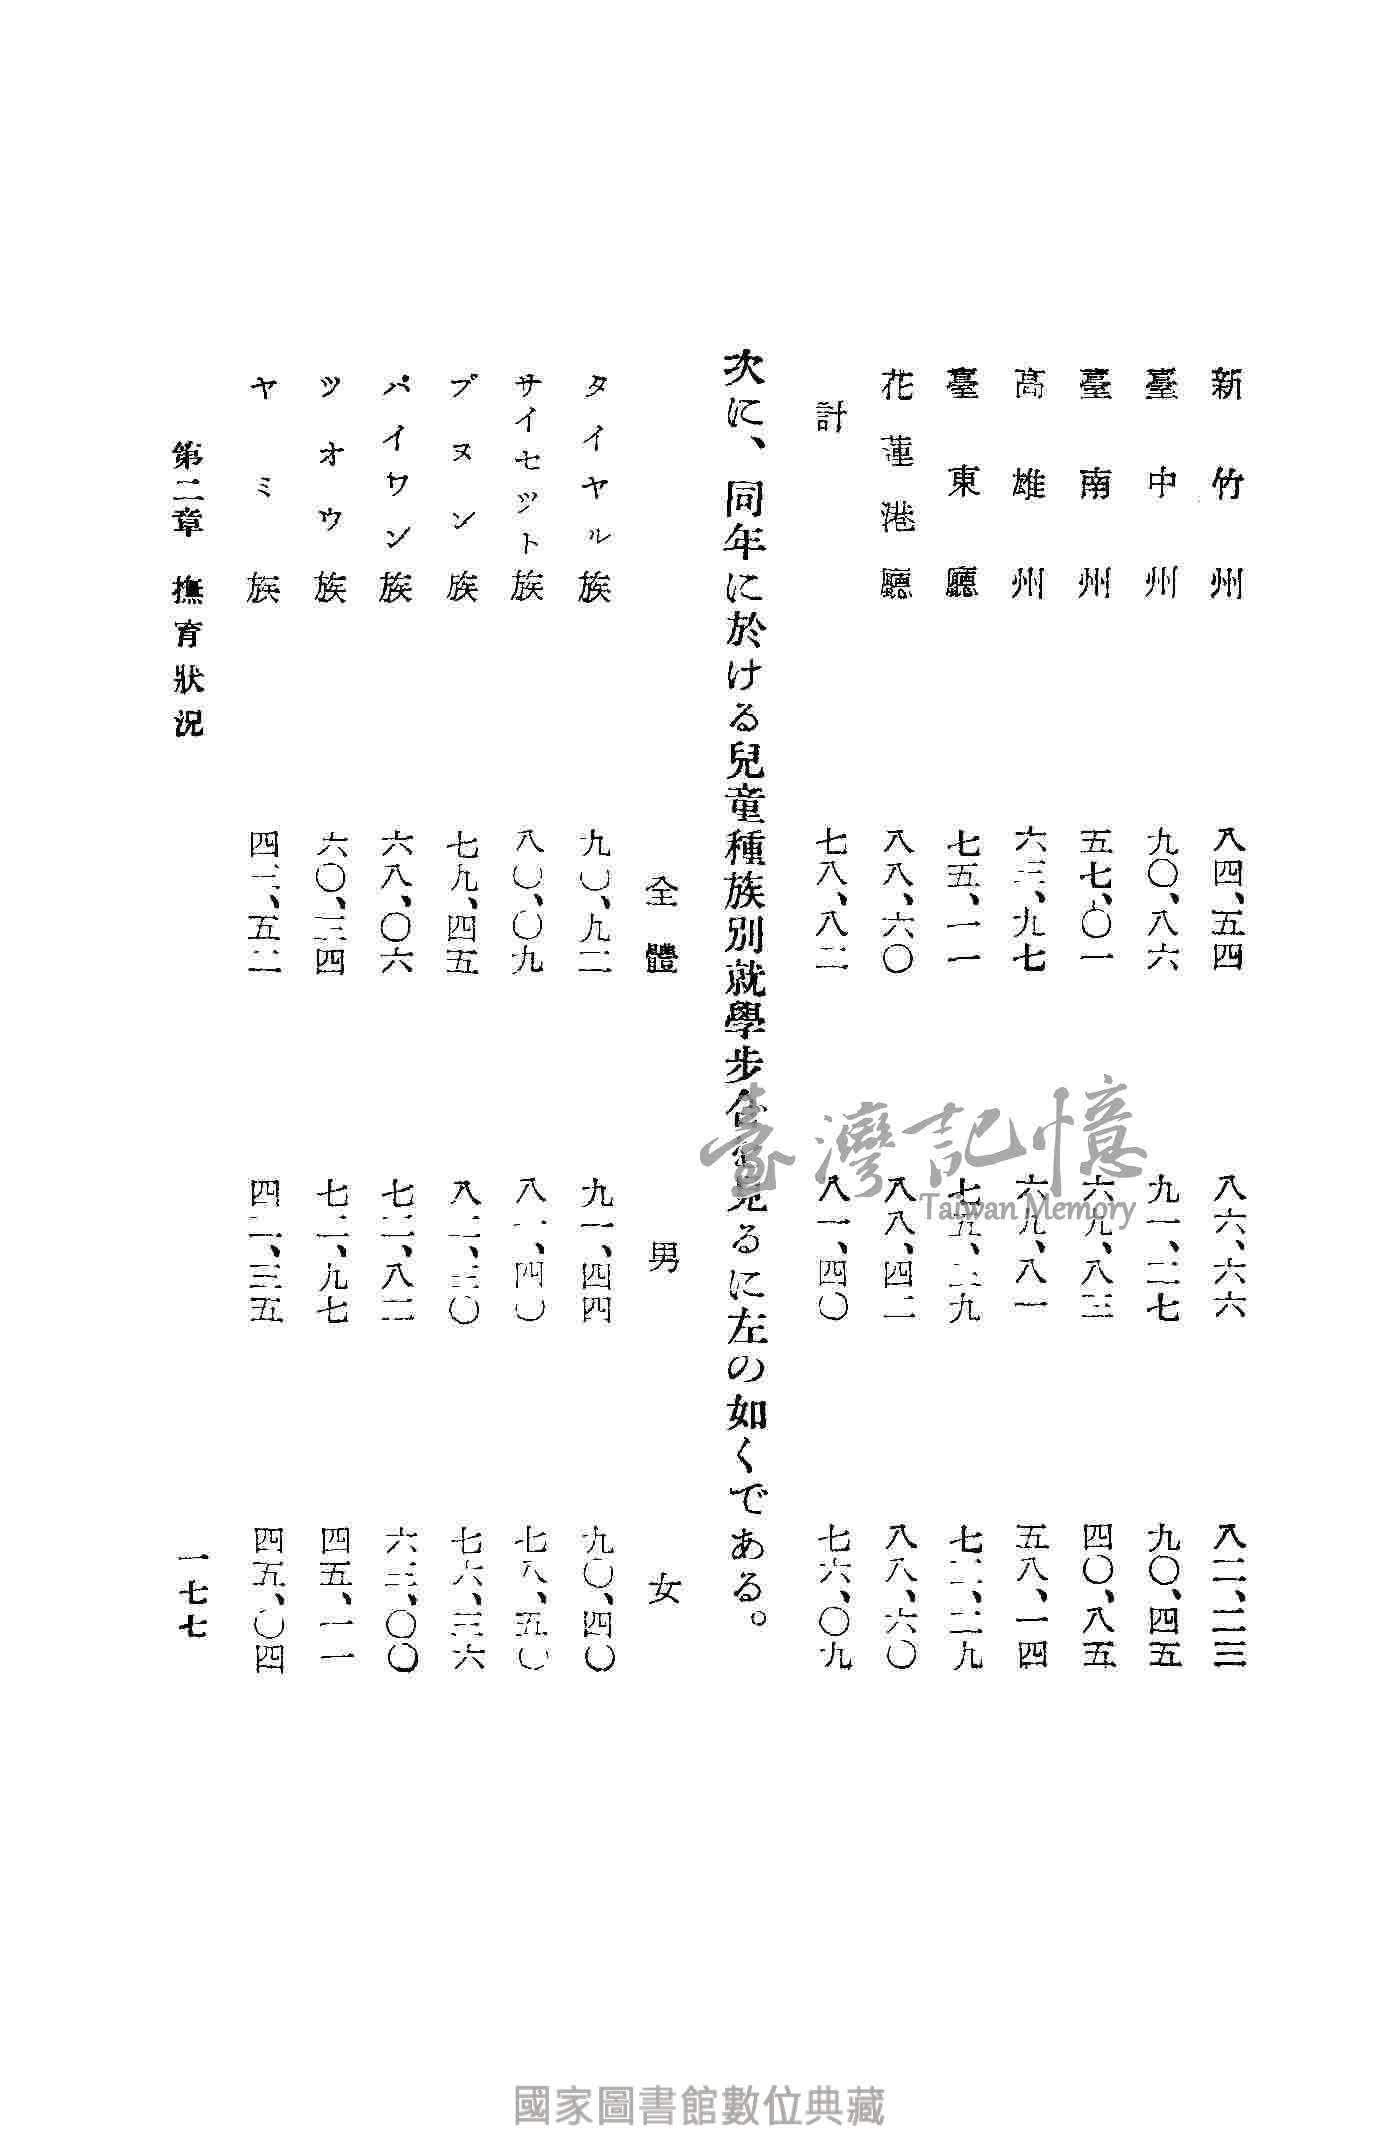 新竹州 八四、五四 八六、六六 八二、二三
臺中州 九〇、八六 九一、二七 九〇、四五
臺南州 五七、〇一 六九、八三 四〇、八五
高雄州 六三、九七 六九、八一 五八、一四
臺東廳 七五、一一 七五、 九 七 、二九
花蓮港廳 八八、六〇 八八、四二 八八、六〇
計 七八、八二 八一、四〇 七六、〇九
次に、同年に於ける兒童種族別就學步合を見るに左の如くである。
全體 男 女
タイヤル族 九〇、九二 九一、四四 九〇、四〇
サイセット族 八〇、〇九 八一、四〇 七八、五〇
ブヌン族 七九、四五 八二、三〇 七六、三六
パイワン族 六八、〇六 七三、八二 六三、〇〇
ツオウ族 六〇、三四 七二、九七 四五、一一
ヤミ族 四三、五二 四二、三五 四五、〇四
第二章 撫育狀況
一七七
臺灣記憶
Taiwan Memory
國家圖書館數位典藏